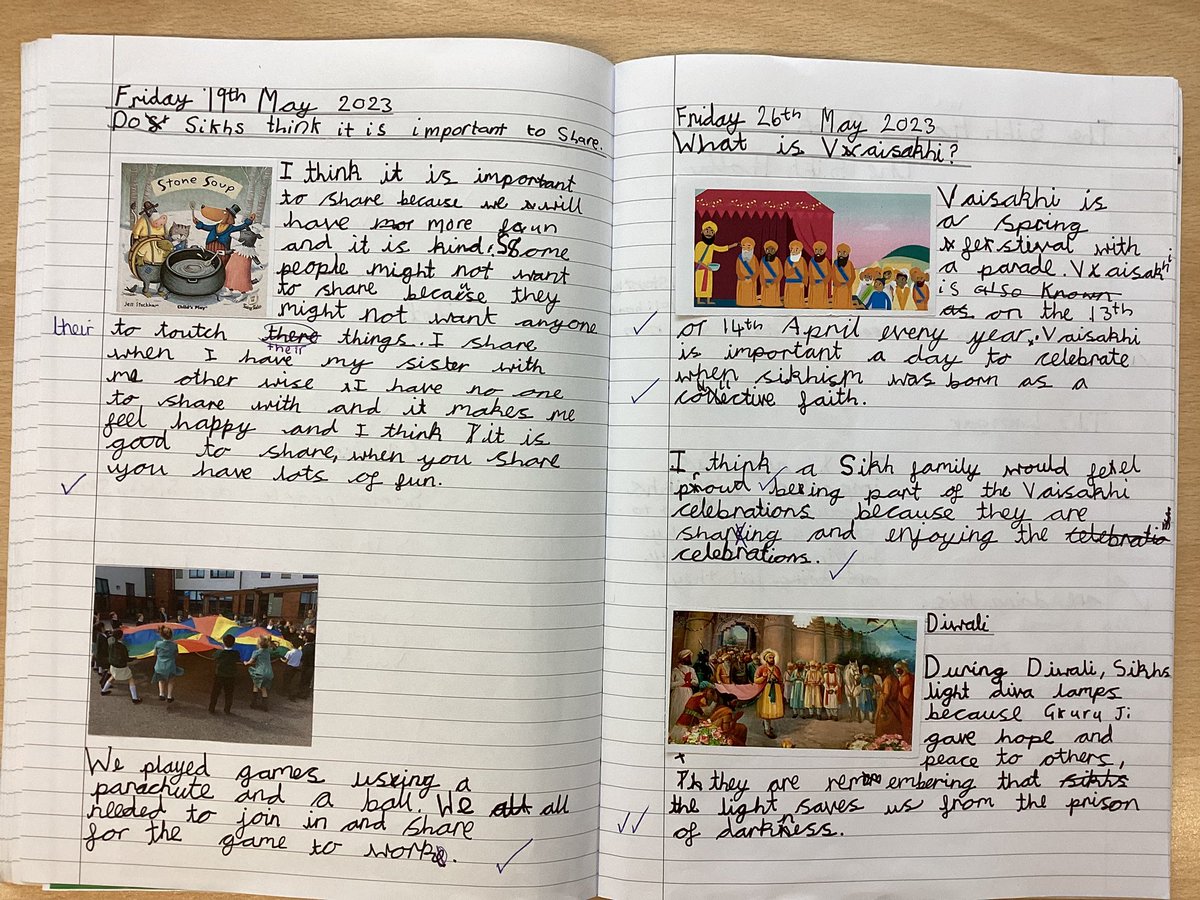 Friday 19th May 2023
Do Sikhs think it is important to Share.
Stone Soup
Jess Stockham
Child's Play
I think it is important
to share because we will
have more fun
and it is kind. Some
people might not want
to share because they
might not want anyone
their
to toutch there things. I share
their
when I have my sister with
me other wise I have no one
to share with and it makes me
feel happy and I think it is
good to share, when you share
you have lots of fun.
We played games using a
parachute and a ball. We all all
needed to join in and share
for the game to work.
Friday 26th May 2023
What is Vaisakhi?
Vaisakhi is
a spring
festival with
a parade. Vaisakhi
is also known
as on the 13th
or 14th April every year. Vaisakhi
is important a day to celebrate
when sikhism was born as a
collective faith.
I think a Sikh family would feel
proud being part of the Vaisakhi
celebrations because they are
sharing and enjoying the
celebrations.
Diwali
During Diwali, Sikhs
light diva lamps
because Guru Ji
gave hope and
peace to others,
they are remembering that sikhs
the light saves us from the prison
of darkness.